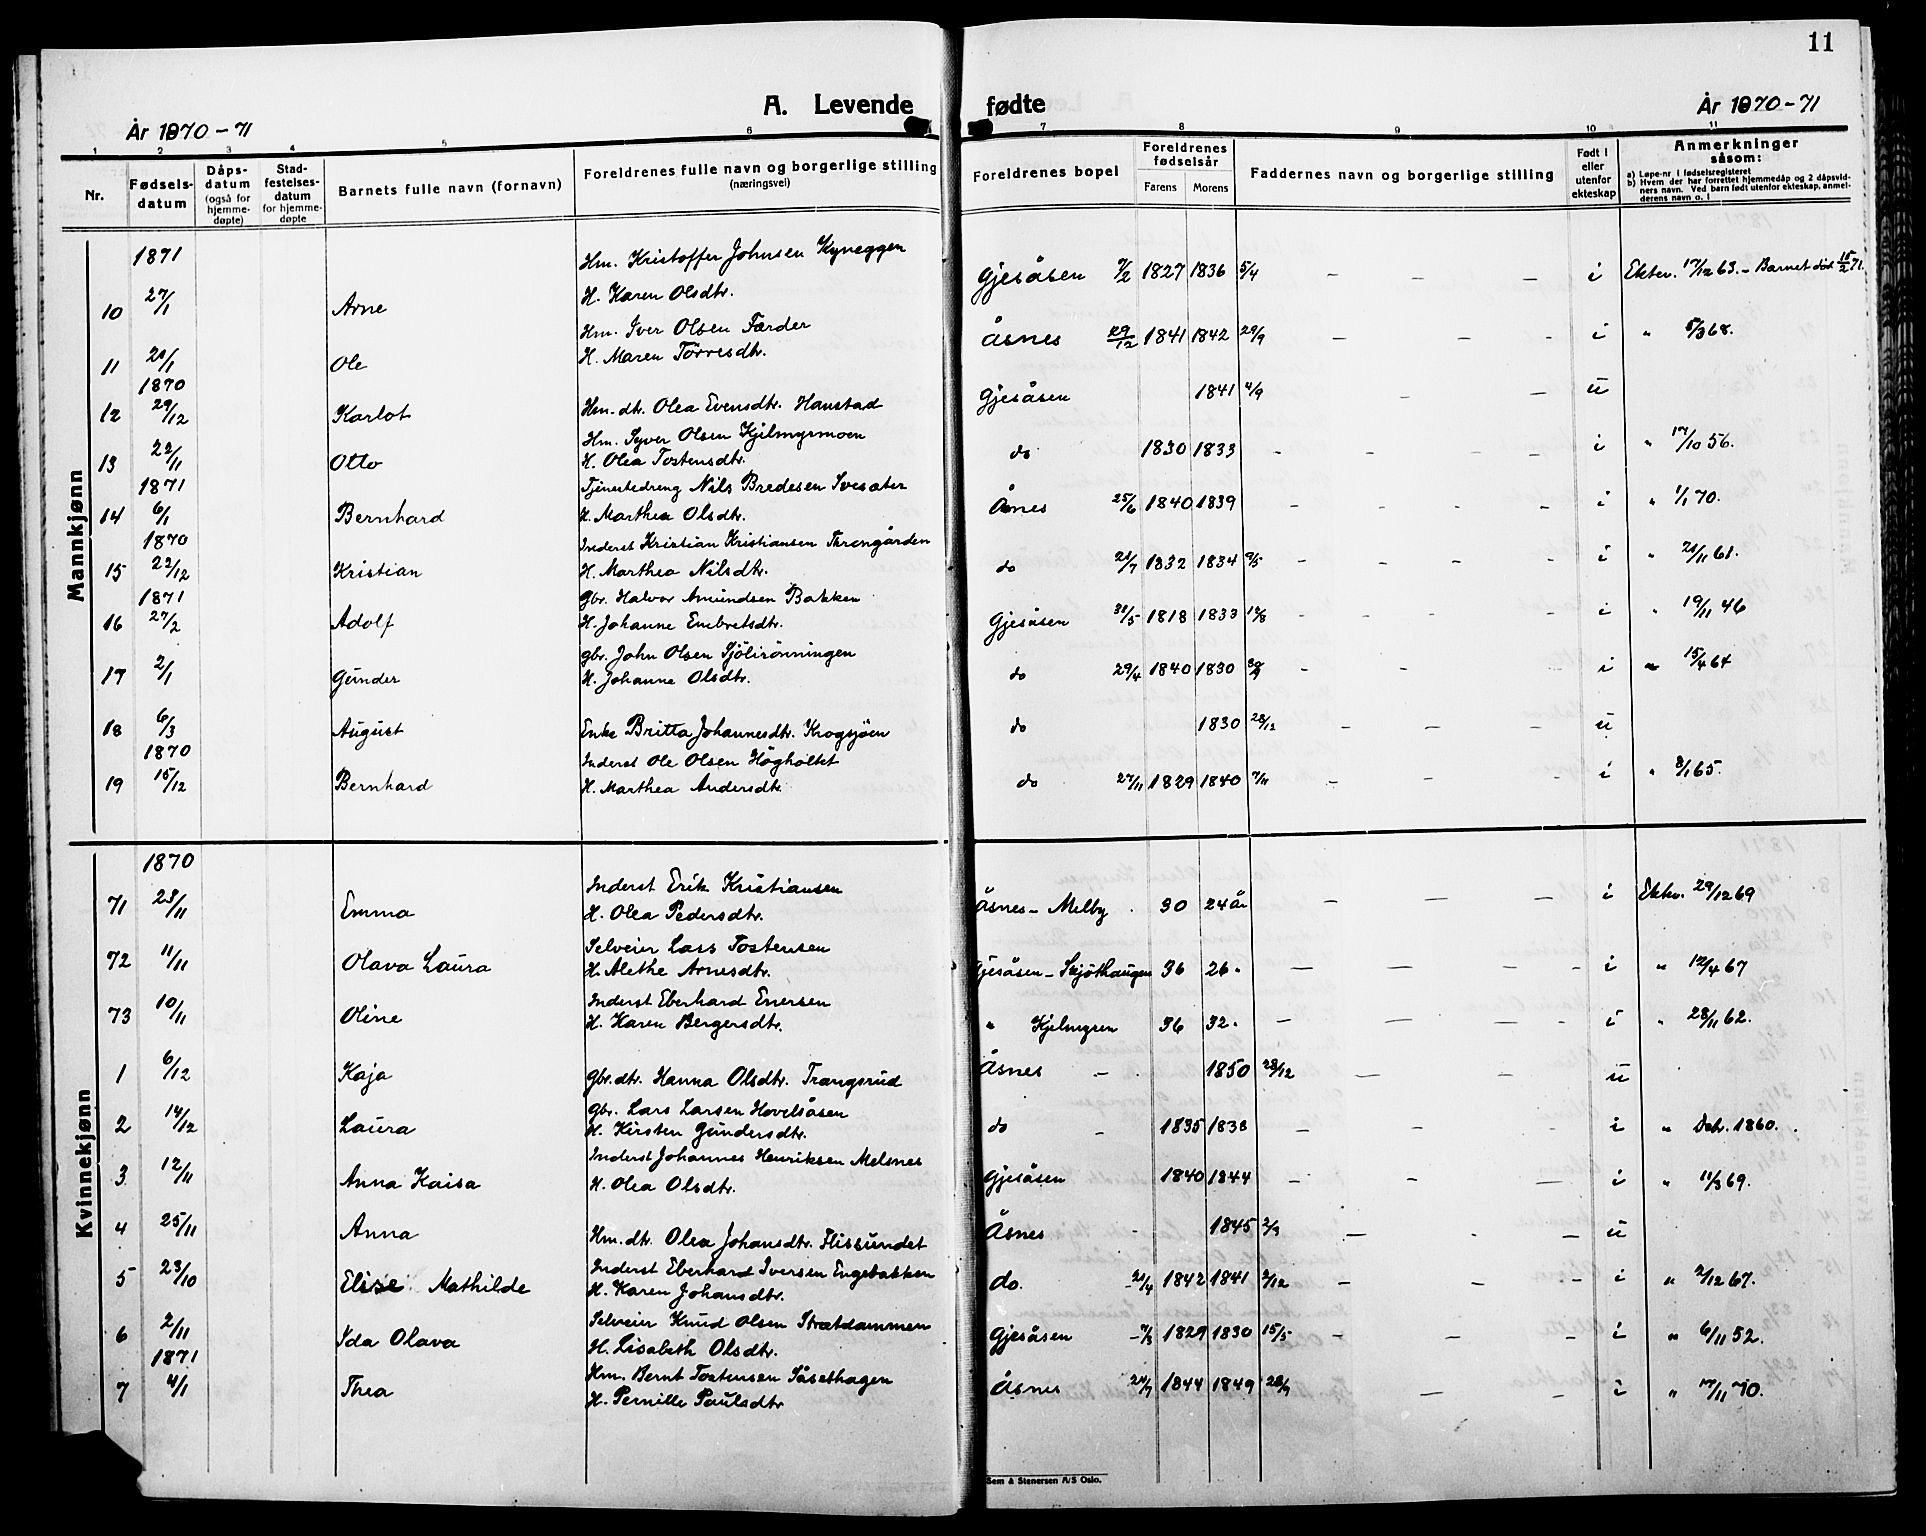 11
A. Levende fødte
År 1870-71
År 1870-71
1 2 3 4 5 6 7 8 9 10 11
Nr.
Fødsels-datum
Dåps-datum (også for hjemme-døpte)
Stad-festelses-datum for hjemme-døpte
Barnets fulle navn (fornavn)
Foreldrenes fulle navn og borgerlige stilling (næringsvei)
Foreldrenes bopel
Foreldrenes fødselsår
Farens Morens
Faddernes navn og borgerlige stilling
Født i eller utenfor ekteskap
Anmerkninger såsom:
a) Løpe-nr i fødselsregisteret
b) Hvem der har forrettet hjemmedåp og 2 dåpsvid-
ners navn. Ved barn født utenfor ekteskap, anmel-
derens navn o. l
Mannkjønn
1871 Hm. Kristoffer Johnsen Kyneggen
10 27/1 Arne H. Karen Olsdtr. Gjesåsen 7/2 1827 1836 5/4 – – – i Ektev. 17/12 63. – Barnet död 15/2 71.
Hm. Iver Olsen Færder
11 21/1 Ole H. Maren Törresdtr. Åsnes 29/12 1841 1842 29/9 – – – i " 5/3 68.
1870
12 29/12 Karlot Hm. dtr. Olea Evensdtr. Hanstad Gjesåsen 1841 4/9 – – u
Hm. Syver Olsen Kjilmyrmoen
13 22/11 Otto H. Olea Tostensdtr. do 1830 1833 – – – i " 17/10 56.
1871 Tjenestedreng Nils Bredesen Svesæter
14 6/1 Bernhard H. Marthea Olsdtr. Åsnes 25/6 1840 1839 – – – i " 1/1 70.
1870 Inderst Kristian Kristiansen Trongården
15 22/12 Kristian H. Marthea Nilsdtr. do 21/7 1832 1834 9/5 – – – i " 21/11 61.
1871 Gbr. Halvor Amundsen Bakken
16 27/2 Adolf H. Johanne Embretsdtr. Gjesåsen 31/5 1818 1833 12/8 – – – i " 19/11 46
Gbr. John Olsen Sjölirönningen
17 2/1 Gunder H. Johanne Olsdtr. do 29/4 1840 1830 – – – i " 15/4 64
18 6/3 August Enke Britta Johannesdtr. Krogsjöen do 1830 28/12 – – – u
1870 Inderst Ole Olsen Högholtet
19 15/12 Bernhard H. Marthea Andersdtr. do 27/11 1829 1840 7/11 – – – i " 8/1 65.
Kvinnekjønn
1870
Inderst Erik Kristiansen
71 23/11 Emma H. Olea Pedersdtr. Åsnes – Melby 30 24 år – – – i Ektev. 29/12 69
Selveier Lars Tostensen
72 11/11 Olava Laura H. Alethe Arnesdtr. Gjesåsen – Skjöthaugen 36 26 " – – – – i " 12/4 67
Inderst Eberhard Enersen
73 10/11 Oline H. Karen Bergersdtr. " Kjelmyren 36 32 " – – – – i " 28/11 62.
1 6/12 Kaja Gbr. dtr. Hanna Olsdtr. Trangsrud Åsnes – 1850 28/12 – – – u
Gbr. Lars Larsen Hovelsåsen
2 14/12 Laura H. Kirsten Gundersdtr. do – 1835 1838 – – – i " Dcbr. 1860.
Inderst Johannes Henriksen Melsnes
3 12/11 Anna Kaisa H. Olea Olsdtr. Gjesåsen 1840 1844 – – – i " 11/3 69.
4 25/11 Anna Hm. dtr. Olea Johansdtr. Flissundet Åsnes – 1845 2/9 – – – u
Inderst Eberhard Iversen Engebakken
5 23/10 Elise Mathilde H. Karen Johansdtr. do. – 21/4 1842 1841 2/12 – – – i " 2/12 67.
Selveier Knud Olsen Strætdammen
6 2/11 Ida Olava H. Lisabeth Olsdtr. Gjesåsen – 7/3 1829 1830 15/5 – – – i " 6/11 52.
1871 Hm. Bernt Tostensen Såsethagen
7 4/1 Thea H. Pernille Paulsdtr Åsnes 24/7 1844 1849 28/9 – – i " 17/11 70.
Sem & Stenersen A/S Oslo.